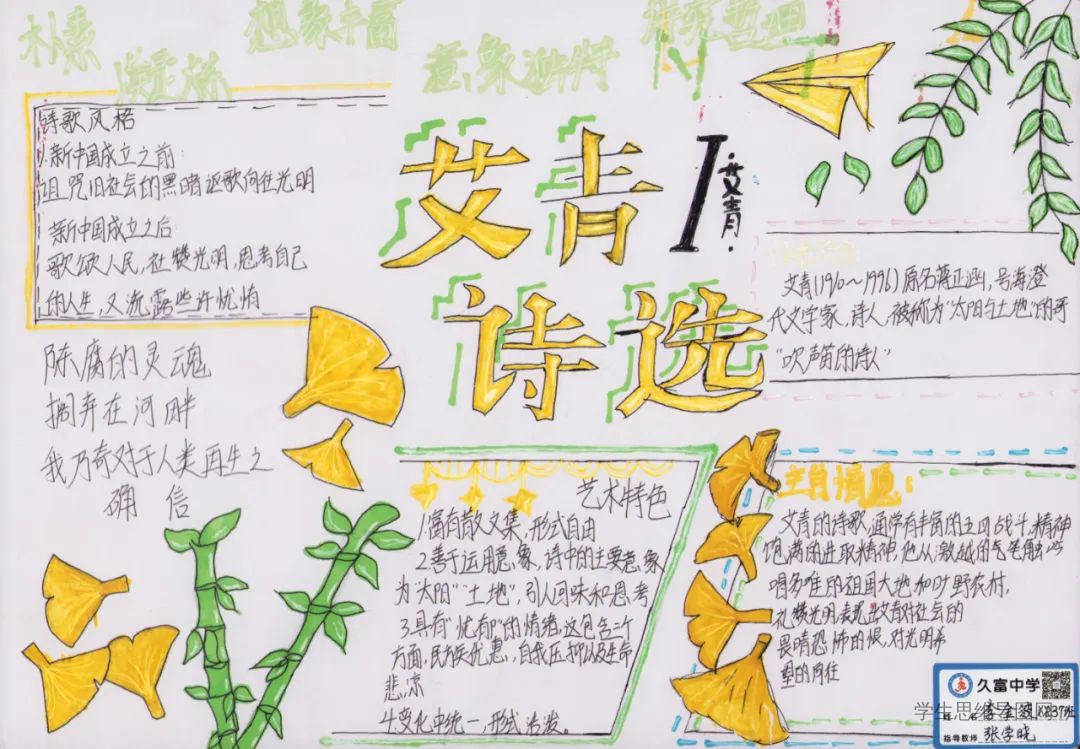 朴素
想象丰富
意象
诗歌风格
1.新中国成立之前:
诅咒旧社会的黑暗讴歌向往光明
新中国成立之后:
歌颂人民,礼赞光明,思考自己
的人生,又流露些许忧伤
陈腐的灵魂
搁弃在河畔
我乃有对于人类再生之
确信
艾青
诗选
艾青
艾青(1910~1996)原名蒋正涵,号海澄
代文学家,诗人,被称为"太阳与土地"的哥
"吹芦笛的诗人"
艺术特色
1.富有散文集,形式自由
2.善于运用意象,诗中的主要意象
为"太阳""土地",引人回味和思考
3.具有"忧郁"的情绪,这包含三个
方面,民为 忧患,自我压抑以及生命
悲凉
4.变化中统一,形式 。
主旨情思:
艾青的诗歌,通常有丰富的五四战斗,精神
饱满的进取精神,他从激越的
唱 的祖国大地和旷野农村,
礼赞光明,表现出艾青对社会的
畏暗恐怖的恨,对光明希
望的向往
久富中学
学生思维导图
指导教师 张学晓